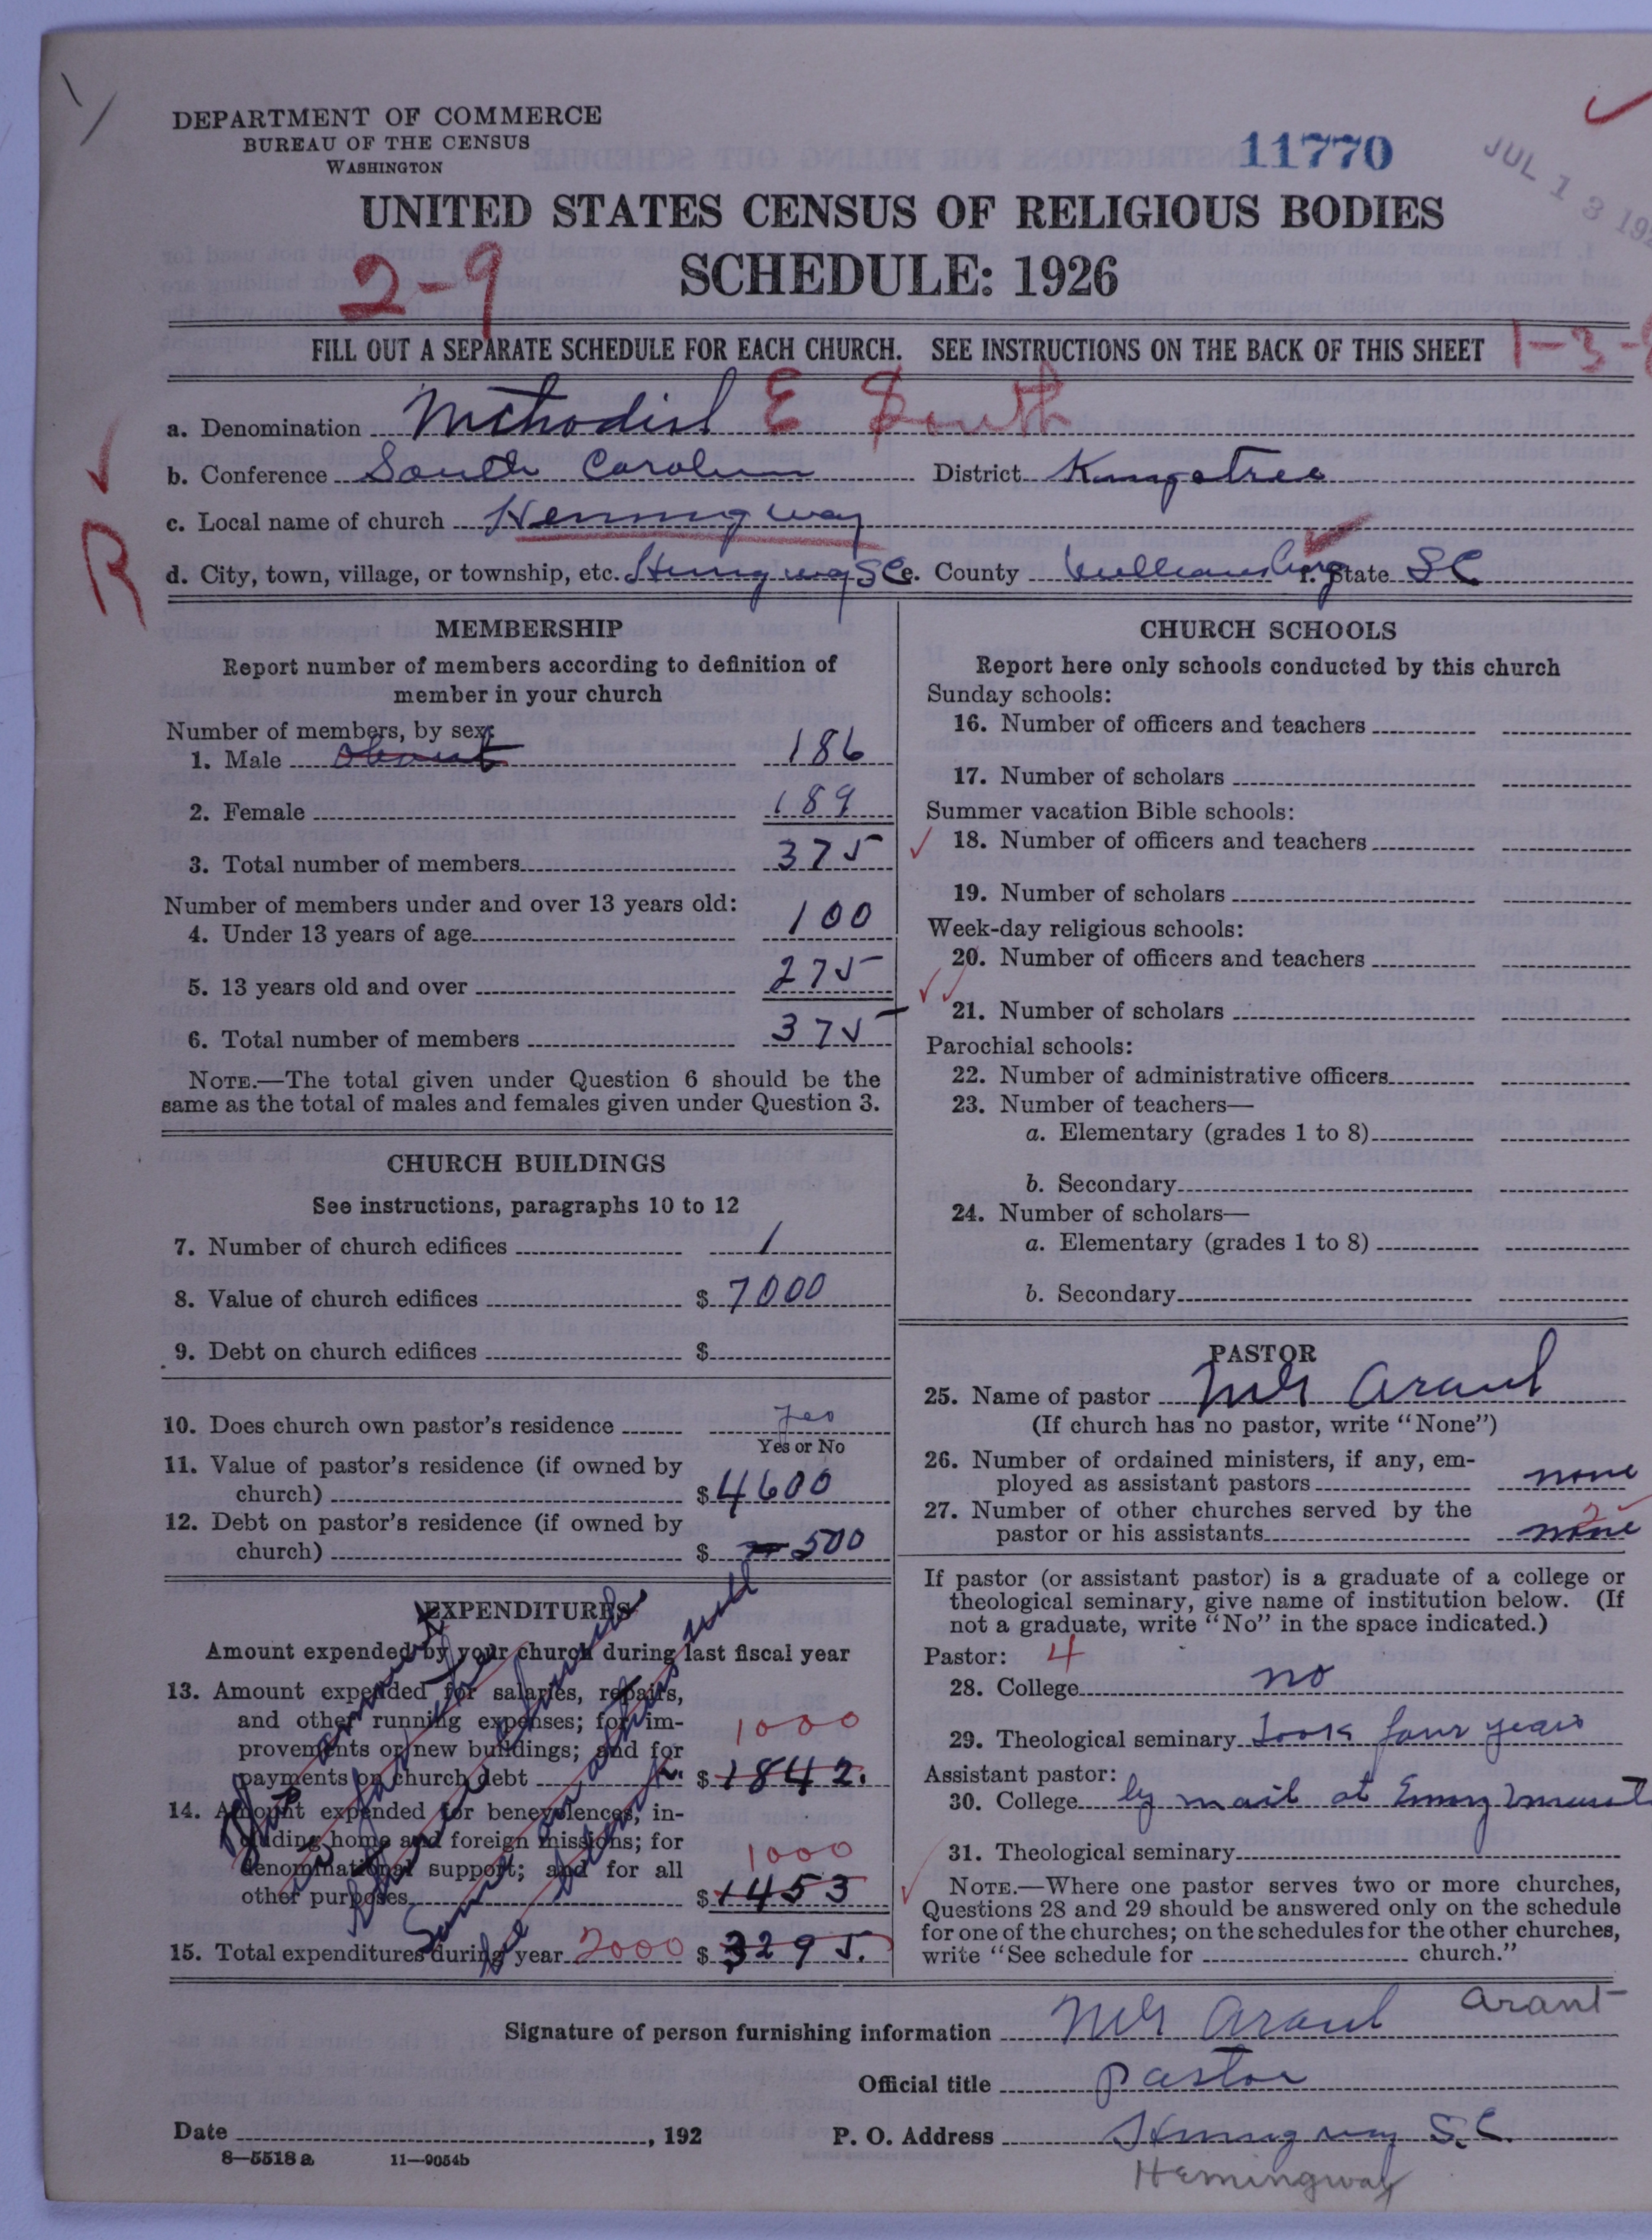 DEPARTMENT OF COMMERCE
BUREAU OF THE CENSUS
WASHINGTON
11770
JUL 13 192
UNITED STATES CENSUS OF RELIGIOUS BODIES
SCHEDULE: 1926
2-9
FILL OUT A SEPARATE SCHEDULE FOR EACH CHURCH. SEE INSTRUCTIONS ON THE BACK OF THIS SHEET
1-3-
a. Denomination Methodist E South
b. Conference South Carolina District Kingstree
R
c. Local name of church Hemingway
d. City, town, village, or township, etc. Hemingway SC e. County Williamsburg f. State SC
MEMBERSHIP
Report number of members according to definition of
member in your church
Number of members, by sex:
1. Male about 186
2. Female 189
3. Total number of members 375
Number of members under and over 13 years old:
4. Under 13 years of age 100
5. 13 years old and over 275
6. Total number of members 375
NOTE.—The total given under Question 6 should be the
same as the total of males and females given under Question 3.
CHURCH BUILDINGS
See instructions, paragraphs 10 to 12
7. Number of church edifices 1
8. Value of church edifices $ 7000
9. Debt on church edifices $
10. Does church own pastor's residence yes
Yes or No
11. Value of pastor's residence (if owned by
church) $ 4600
12. Debt on pastor's residence (if owned by
church) $ 500
EXPENDITURES
Amount expended by your church during last fiscal year
13. Amount expended for salaries, repairs,
and other running expenses; for im-
provements or new buildings; and for
payments on church debt $ 1842.
1000
14. Amount expended for benevolences, in-
cluding home and foreign missions; for
denominational support; and for all
other purposes $ 1453
1000
15. Total expenditures during year 2000 $ 3295.
CHURCH SCHOOLS
Report here only schools conducted by this church
Sunday schools:
16. Number of officers and teachers
17. Number of scholars
Summer vacation Bible schools:
18. Number of officers and teachers
19. Number of scholars
Week-day religious schools:
20. Number of officers and teachers
21. Number of scholars
Parochial schools:
22. Number of administrative officers
23. Number of teachers—
a. Elementary (grades 1 to 8)
b. Secondary
24. Number of scholars—
a. Elementary (grades 1 to 8)
b. Secondary
PASTOR
25. Name of pastor Arant
(If church has no pastor, write "None")
26. Number of ordained ministers, if any, em-
ployed as assistant pastors none
27. Number of other churches served by the
pastor or his assistants none 2
If pastor (or assistant pastor) is a graduate of a college or
theological seminary, give name of institution below. (If
not a graduate, write "No" in the space indicated.)
Pastor: 4
28. College no
29. Theological seminary Took four years
Assistant pastor:
30. College by mail at Emory
31. Theological seminary
NOTE.—Where one pastor serves two or more churches,
Questions 28 and 29 should be answered only on the schedule
for one of the churches; on the schedules for the other churches,
write "See schedule for church."
Signature of person furnishing information Arant Arant
Official title Pastor
Date , 192 P. O. Address Hemingway S.C.
8—5518a 11—9054b
Hemingway